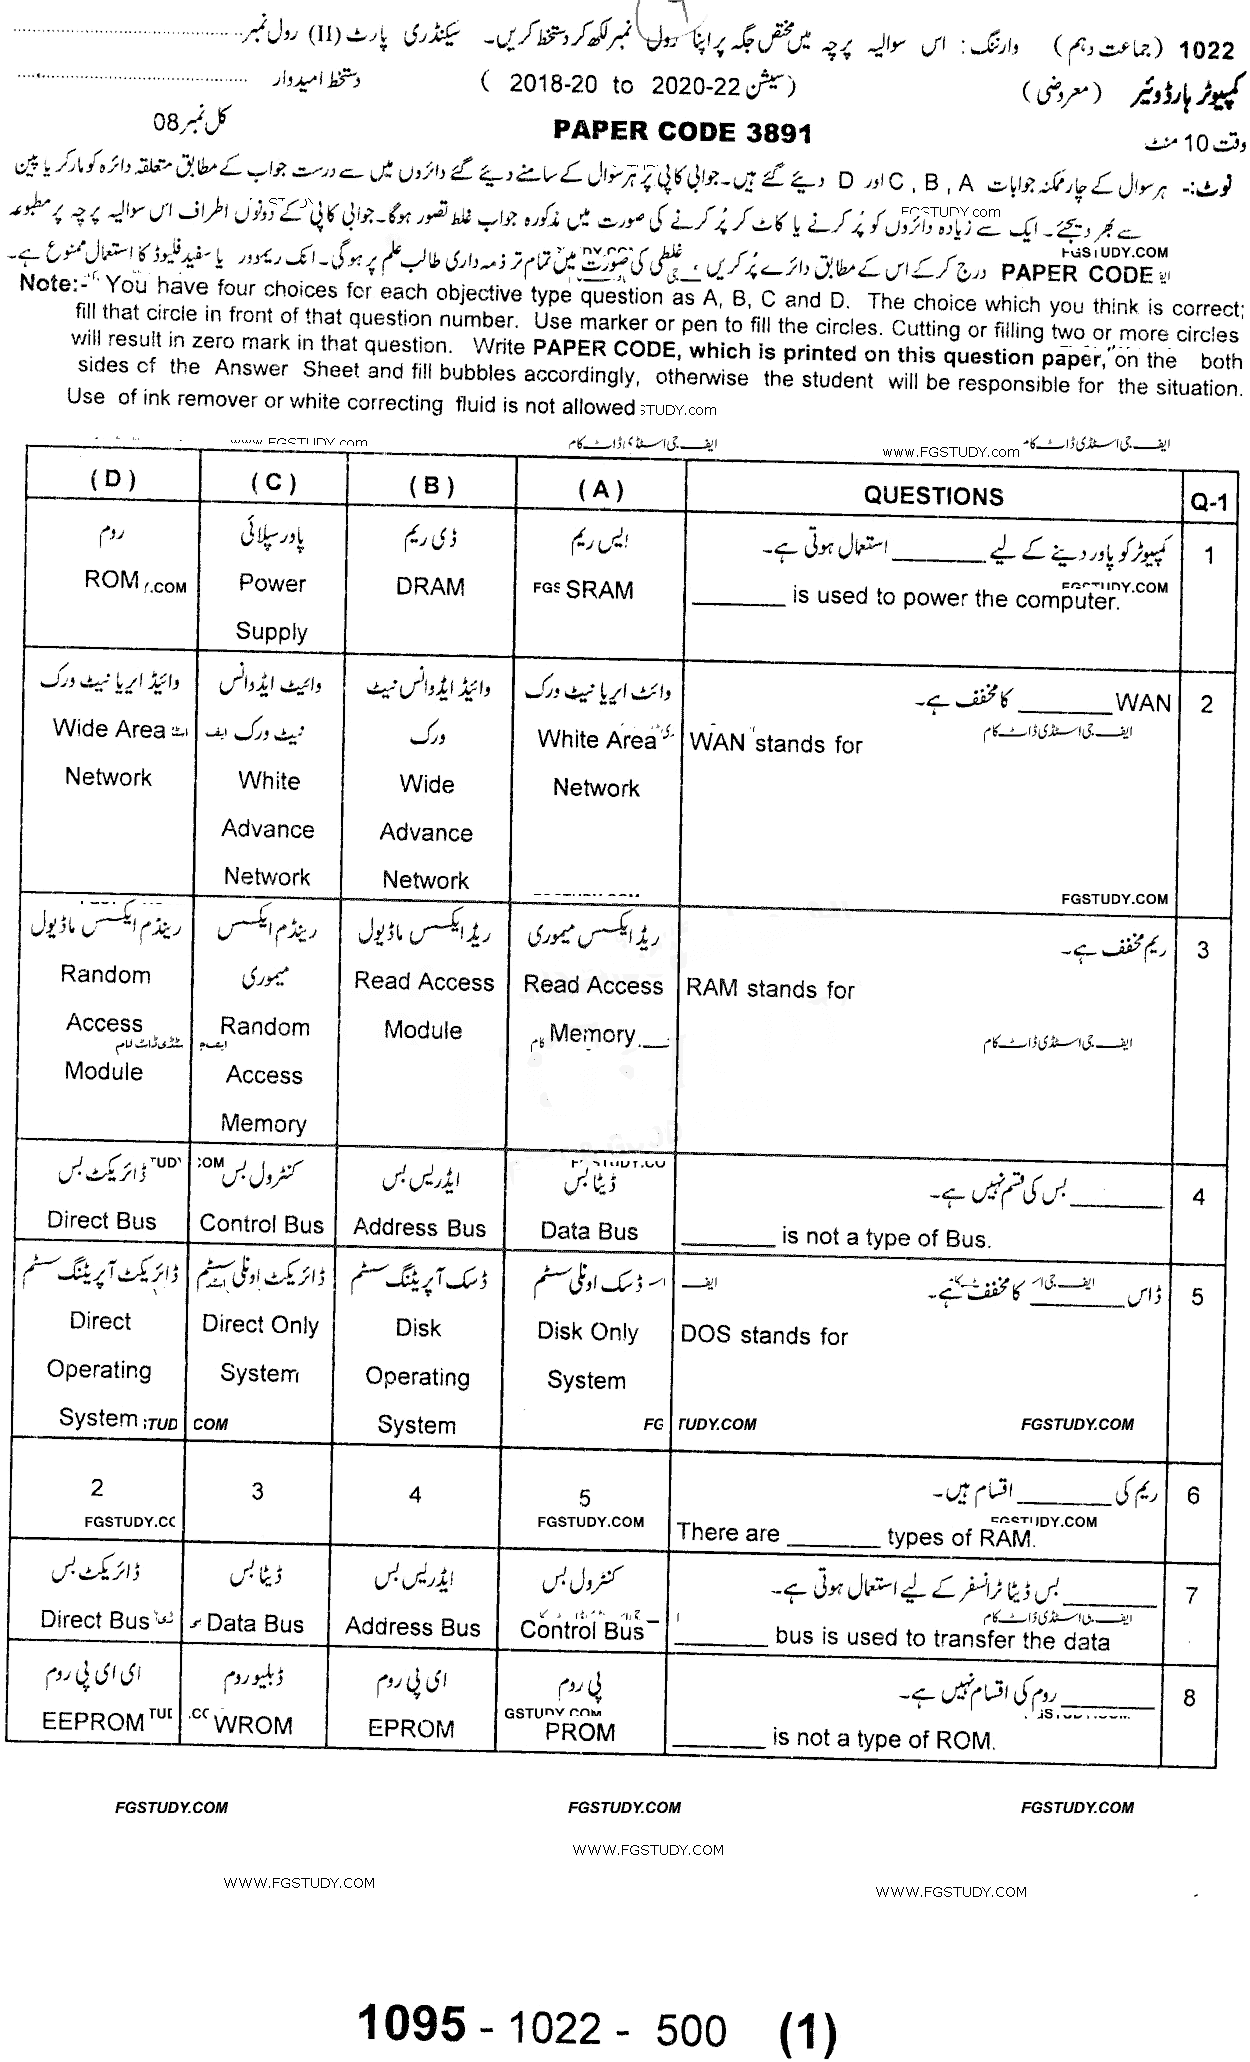 1022 (جماعت دہم) وارننگ: اس سوالیہ پرچہ میں مختص جگہ پر اپنا رول نمبر لکھ کر دستخط کریں۔ سیکنڈری پارٹ (II) رول نمبر
کمپیوٹر ہارڈوئیر (معروضی) (سیشن 2018-20 to 2020-22) دستخط امیدوار
وقت 10 منٹ PAPER CODE 3891 کل نمبر 08
نوٹ:- ہر سوال کے چار ممکنہ جوابات A , B , C اور D دیئے گئے ہیں۔ جوابی کاپی پر ہر سوال کے سامنے دیئے گئے دائروں میں سے درست جواب کے مطابق متعلقہ دائرہ کو مارکر یا پین
سے بھر دیجئے۔ ایک سے زیادہ دائروں کو پُر کرنے یا کاٹ کر پُر کرنے کی صورت میں مذکورہ جواب غلط تصور ہوگا۔ جوابی کاپی کے دونوں اطراف اس سوالیہ پرچہ پر مطبوعہ
PAPER CODE درج کر کے اس کے مطابق دائرے پُر کریں، غلطی کی صورت میں تمام تر ذمہ داری طالب علم پر ہوگی۔ انک ریموور یا سفید فلیوڈ کا استعمال ممنوع ہے۔
Note:- You have four choices for each objective type question as A, B, C and D. The choice which you think is correct;
fill that circle in front of that question number. Use marker or pen to fill the circles. Cutting or filling two or more circles
will result in zero mark in that question. Write PAPER CODE, which is printed on this question paper, on the both
sides of the Answer Sheet and fill bubbles accordingly, otherwise the student will be responsible for the situation.
Use of ink remover or white correcting fluid is not allowed
www.FGSTUDY.com ایف جی اسٹڈی ڈاٹ کام www.FGSTUDY.com ایف جی اسٹڈی ڈاٹ کام
(D) (C) (B) (A) QUESTIONS Q-1
روم پاور سپلائی ڈی ریم ایس ریم کمپیوٹر کو پاور دینے کے لیے ________ استعمال ہوتی ہے۔ 1
ROM Power DRAM SRAM ________ is used to power the computer.
Supply
وائیڈ ایریا نیٹ ورک وائیٹ ایڈوانس وائیڈ ایڈوانس نیٹ وائٹ ایریا نیٹ ورک WAN ________ کا مخفف ہے۔ 2
Wide Area نیٹ ورک ورک White Area WAN stands for ایف جی اسٹڈی ڈاٹ کام
Network White Wide Network
Advance Advance
Network Network FGSTUDY.COM
رینڈم ایکسس ماڈیول رینڈم ایکسس ریڈ ایکسس ماڈیول ریڈ ایکسس میموری ریم مخفف ہے۔ 3
Random میموری Read Access Read Access RAM stands for
Access Random Module Memory ایف جی اسٹڈی ڈاٹ کام
Module Access
Memory
ڈائریکٹ بس کنٹرول بس ایڈریس بس ڈیٹا بس ________ بس کی قسم نہیں ہے۔ 4
Direct Bus Control Bus Address Bus Data Bus ________ is not a type of Bus.
ڈائریکٹ آپریٹنگ سسٹم ڈائریکٹ اونلی سسٹم ڈسک آپریٹنگ سسٹم ڈسک اونلی سسٹم ڈاس ________ کا مخفف ہے۔ 5
Direct Direct Only Disk Disk Only DOS stands for
Operating System Operating System
System System FGSTUDY.COM
2 3 4 5 ریم کی ________ اقسام ہیں۔ 6
FGSTUDY.COM There are ________ types of RAM.
ڈائریکٹ بس ڈیٹا بس ایڈریس بس کنٹرول بس ________ بس ڈیٹا ٹرانسفر کے لیے استعمال ہوتی ہے۔ 7
Direct Bus Data Bus Address Bus Control Bus ________ bus is used to transfer the data
ای ای پی روم ڈبلیو روم ای پی روم پی روم ________ روم کی اقسام نہیں ہے۔ 8
EEPROM WROM EPROM PROM ________ is not a type of ROM.
FGSTUDY.COM FGSTUDY.COM FGSTUDY.COM
WWW.FGSTUDY.COM
WWW.FGSTUDY.COM WWW.FGSTUDY.COM
1095 - 1022 - 500 (1)